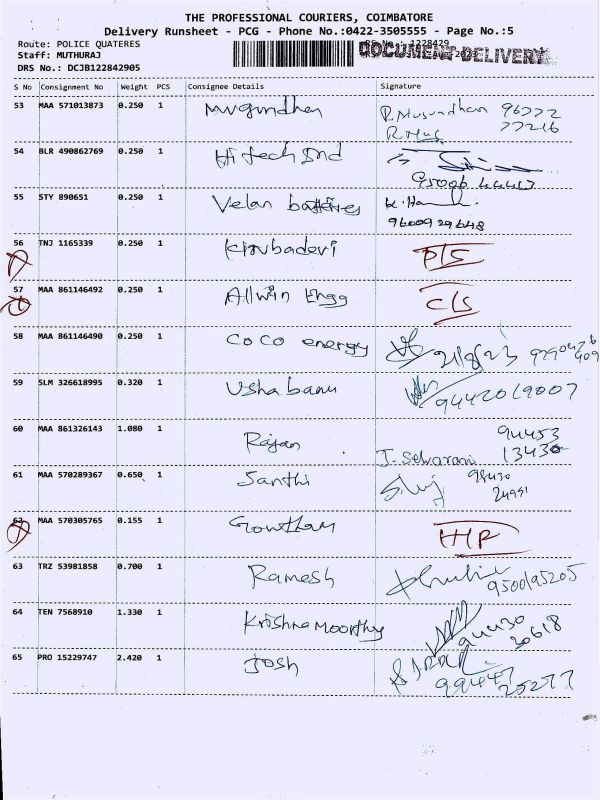 THE PROFESSIONAL COURIERS, COIMBATORE
Delivery Runsheet - PCG - Phone No.:0422-3505555 - Page No.:5
Route: POLICE QUATERES
Staff: MUTHURAJ
DRS No.: DCJB122842905
DOCUMENT DELIVERY
S No Consignment No Weight PCS Consignee Details Signature
53 MAA 571013873 0.250 1 Mugundhan R. Mugundhan 96777
R. Mug 77216
54 BLR 490862769 0.250 1 Hi tech Ind
95006 44447
55 STY 890651 0.250 1 Velan batteries
9600929648
56 TNJ 1165339 0.250 1 Kirubadevi P/S
57 MAA 861146492 0.250 1 Allwin Engg C/S
58 MAA 861146490 0.250 1 CoCo energy 21/8/23
59 SLM 326618995 0.320 1 Usha banu 9442019007
60 MAA 861326143 1.080 1 Rajan J. Selvarani 94453
13430
61 MAA 570289367 0.650 1 Santhi 98430
24991
62 MAA 570305765 0.155 1 Gowtham
63 TRZ 53981858 0.700 1 Ramesh 9500195205
64 TEN 7568910 1.330 1 Krishna Moorthy 94430
30618
65 PRO 15229747 2.420 1 Josh 99447
25277